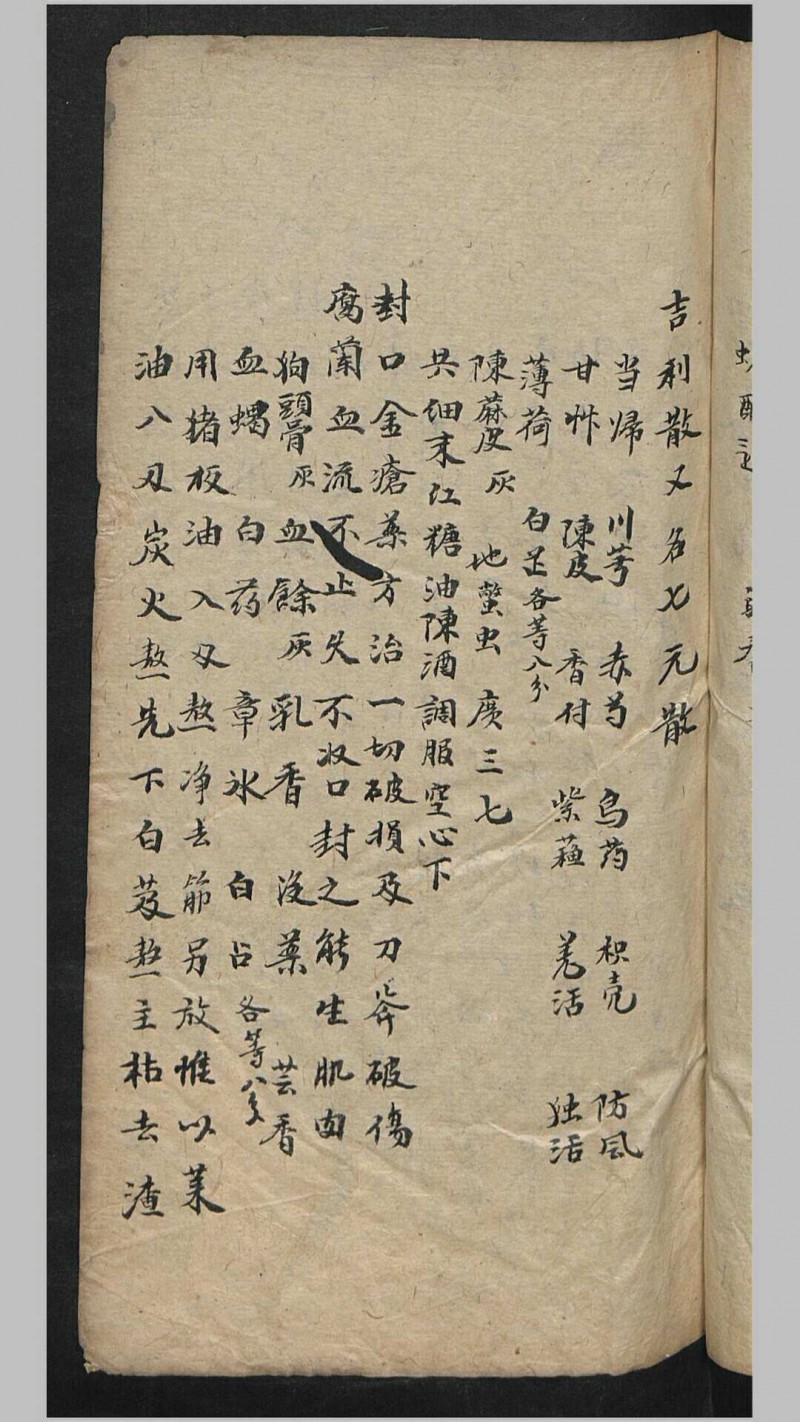 吉利散又名七元散
当帰 川芎 赤芍 乌药 枳壳 防风
甘艸 陳皮 香付 紫蘇 羌活 独活
薄荷 白芷各等八分
陳蔴皮灰 地鳖虫 廣三七
共细末红糖油陳酒調服空心下
封口金瘡藥方治一切破損及刀斧破傷
腐蘭血流不止久不收口封之能生肌肉
狗頭骨灰 血餘灰 乳香 没藥 芸香
血蝎 白药 章氷 白占各等八分
用猪板油入刄熬净去筋另放惟以菜
油八刄炭火熬先下白芨熬至枯去渣